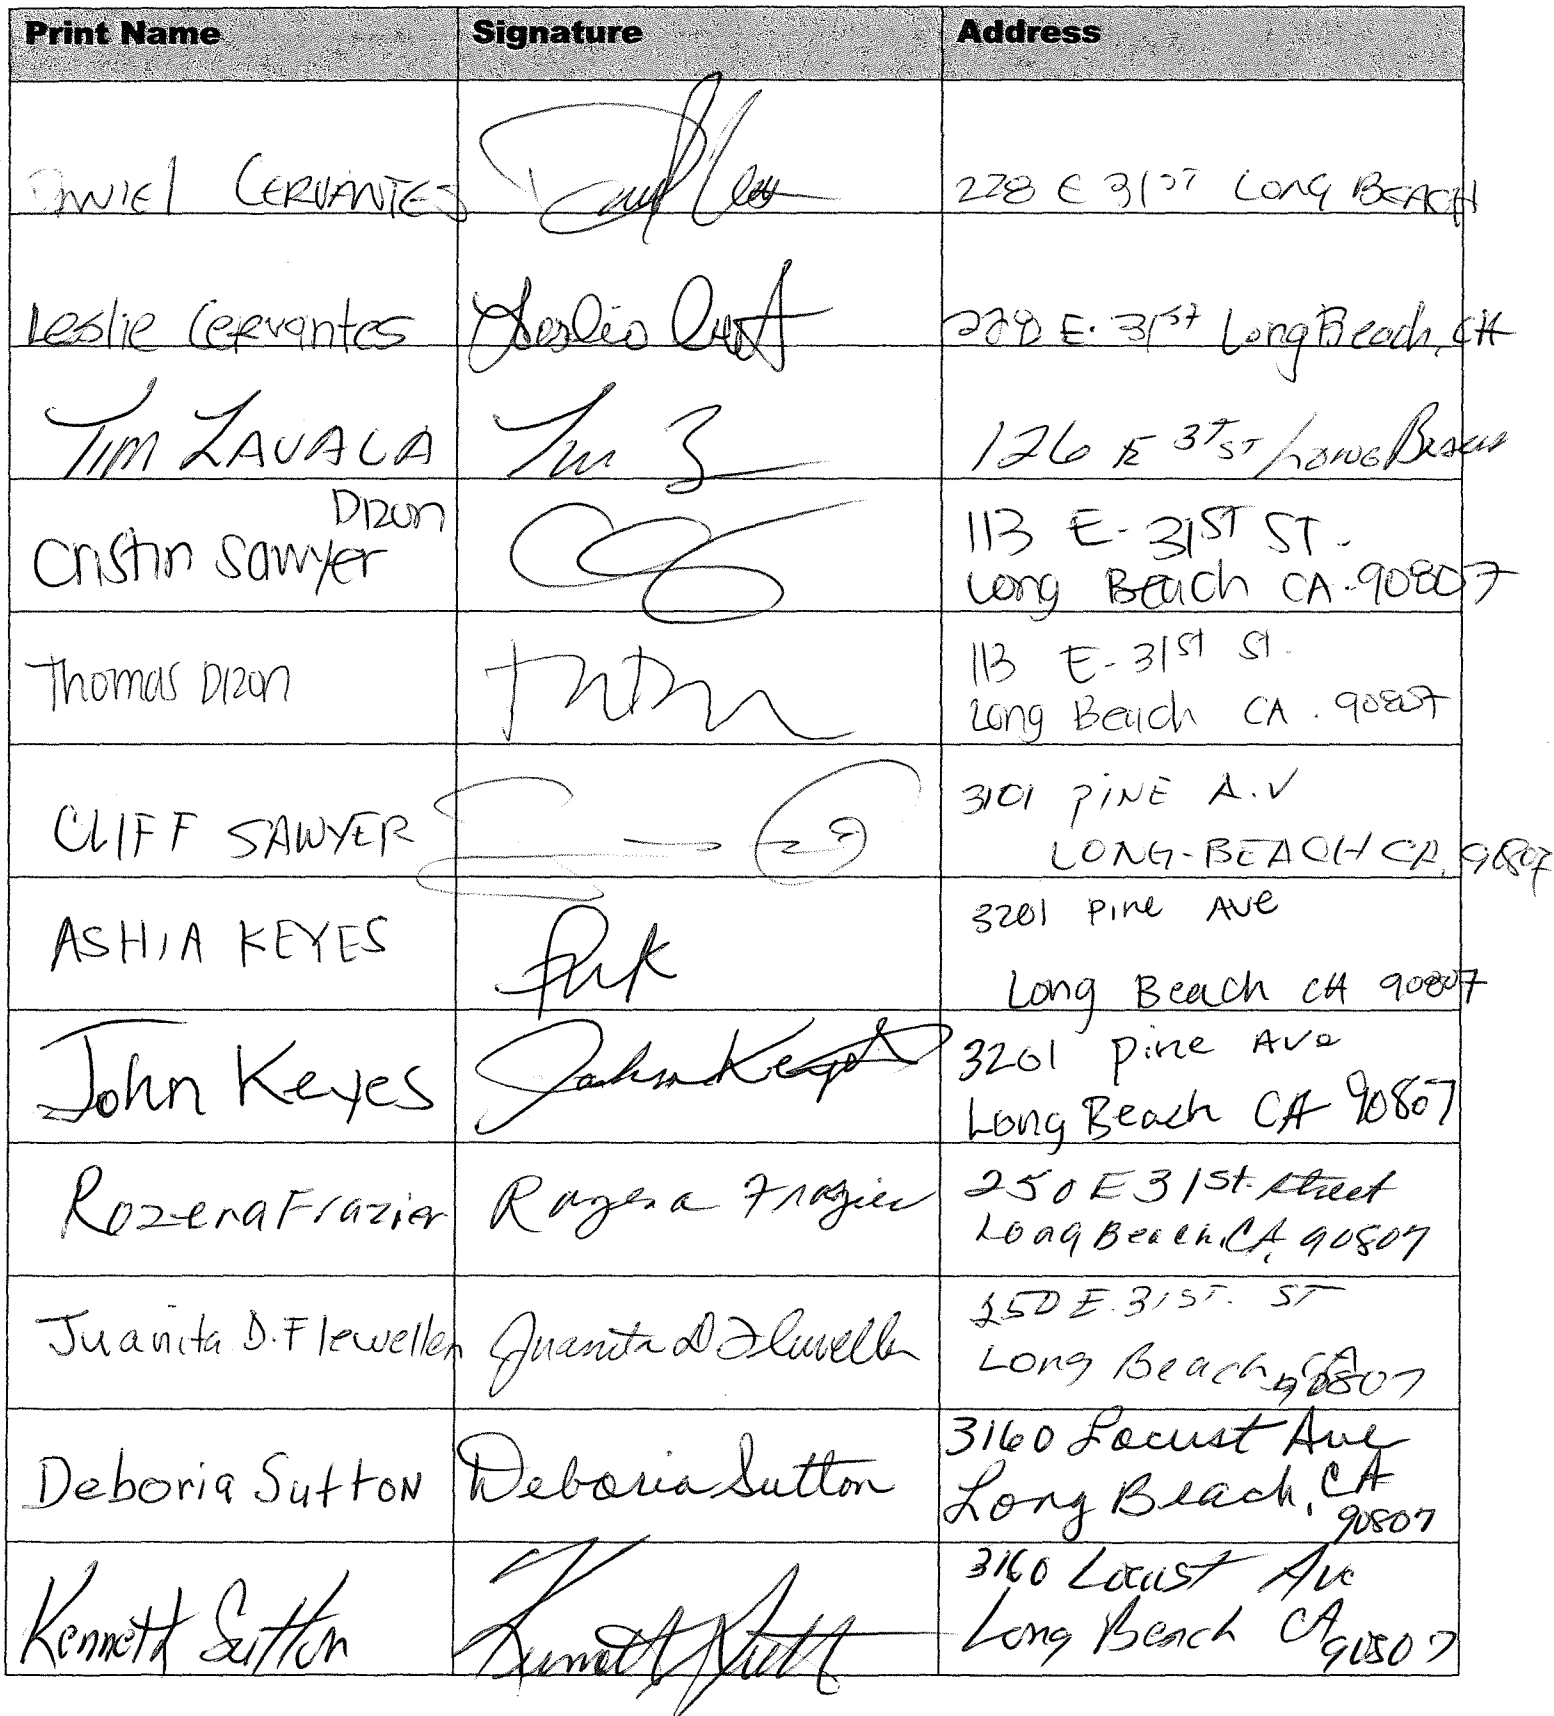 Print Name Signature Address
DANIEL CERVANTES 228 E 31ST LONG BEACH
Leslie Cervantes Leslie 228 E. 31st Long Beach, CA
TIM ZAVALA Tim Z 126 E 31ST ST / LONG BEACH
Dizon
Cristin Sawyer
113 E. 31ST ST.
Long Beach CA. 90807
Thomas Dizon
113 E. 31st St.
Long Beach CA. 90807
CLIFF SAWYER
3101 PINE A.V
LONG-BEACH CA, 90807
ASHIA KEYES
3201 Pine Ave
Long Beach CA 90807
John Keyes John Keyes
3201 Pine Ave
Long Beach CA 90807
Rozena Frazier Rozena Frazier
250 E 31st. street
Long Beach, CA, 90807
Juanita D. Flewellen Juanita D Flewellen
250 E. 31ST. ST
Long Beach, CA
90807
Deboria Sutton Deboria Sutton
3160 Locust Ave
Long Beach, CA
90807
Kenneth Sutton Kenneth Sutton
3160 Locust Ave
Long Beach CA
90807